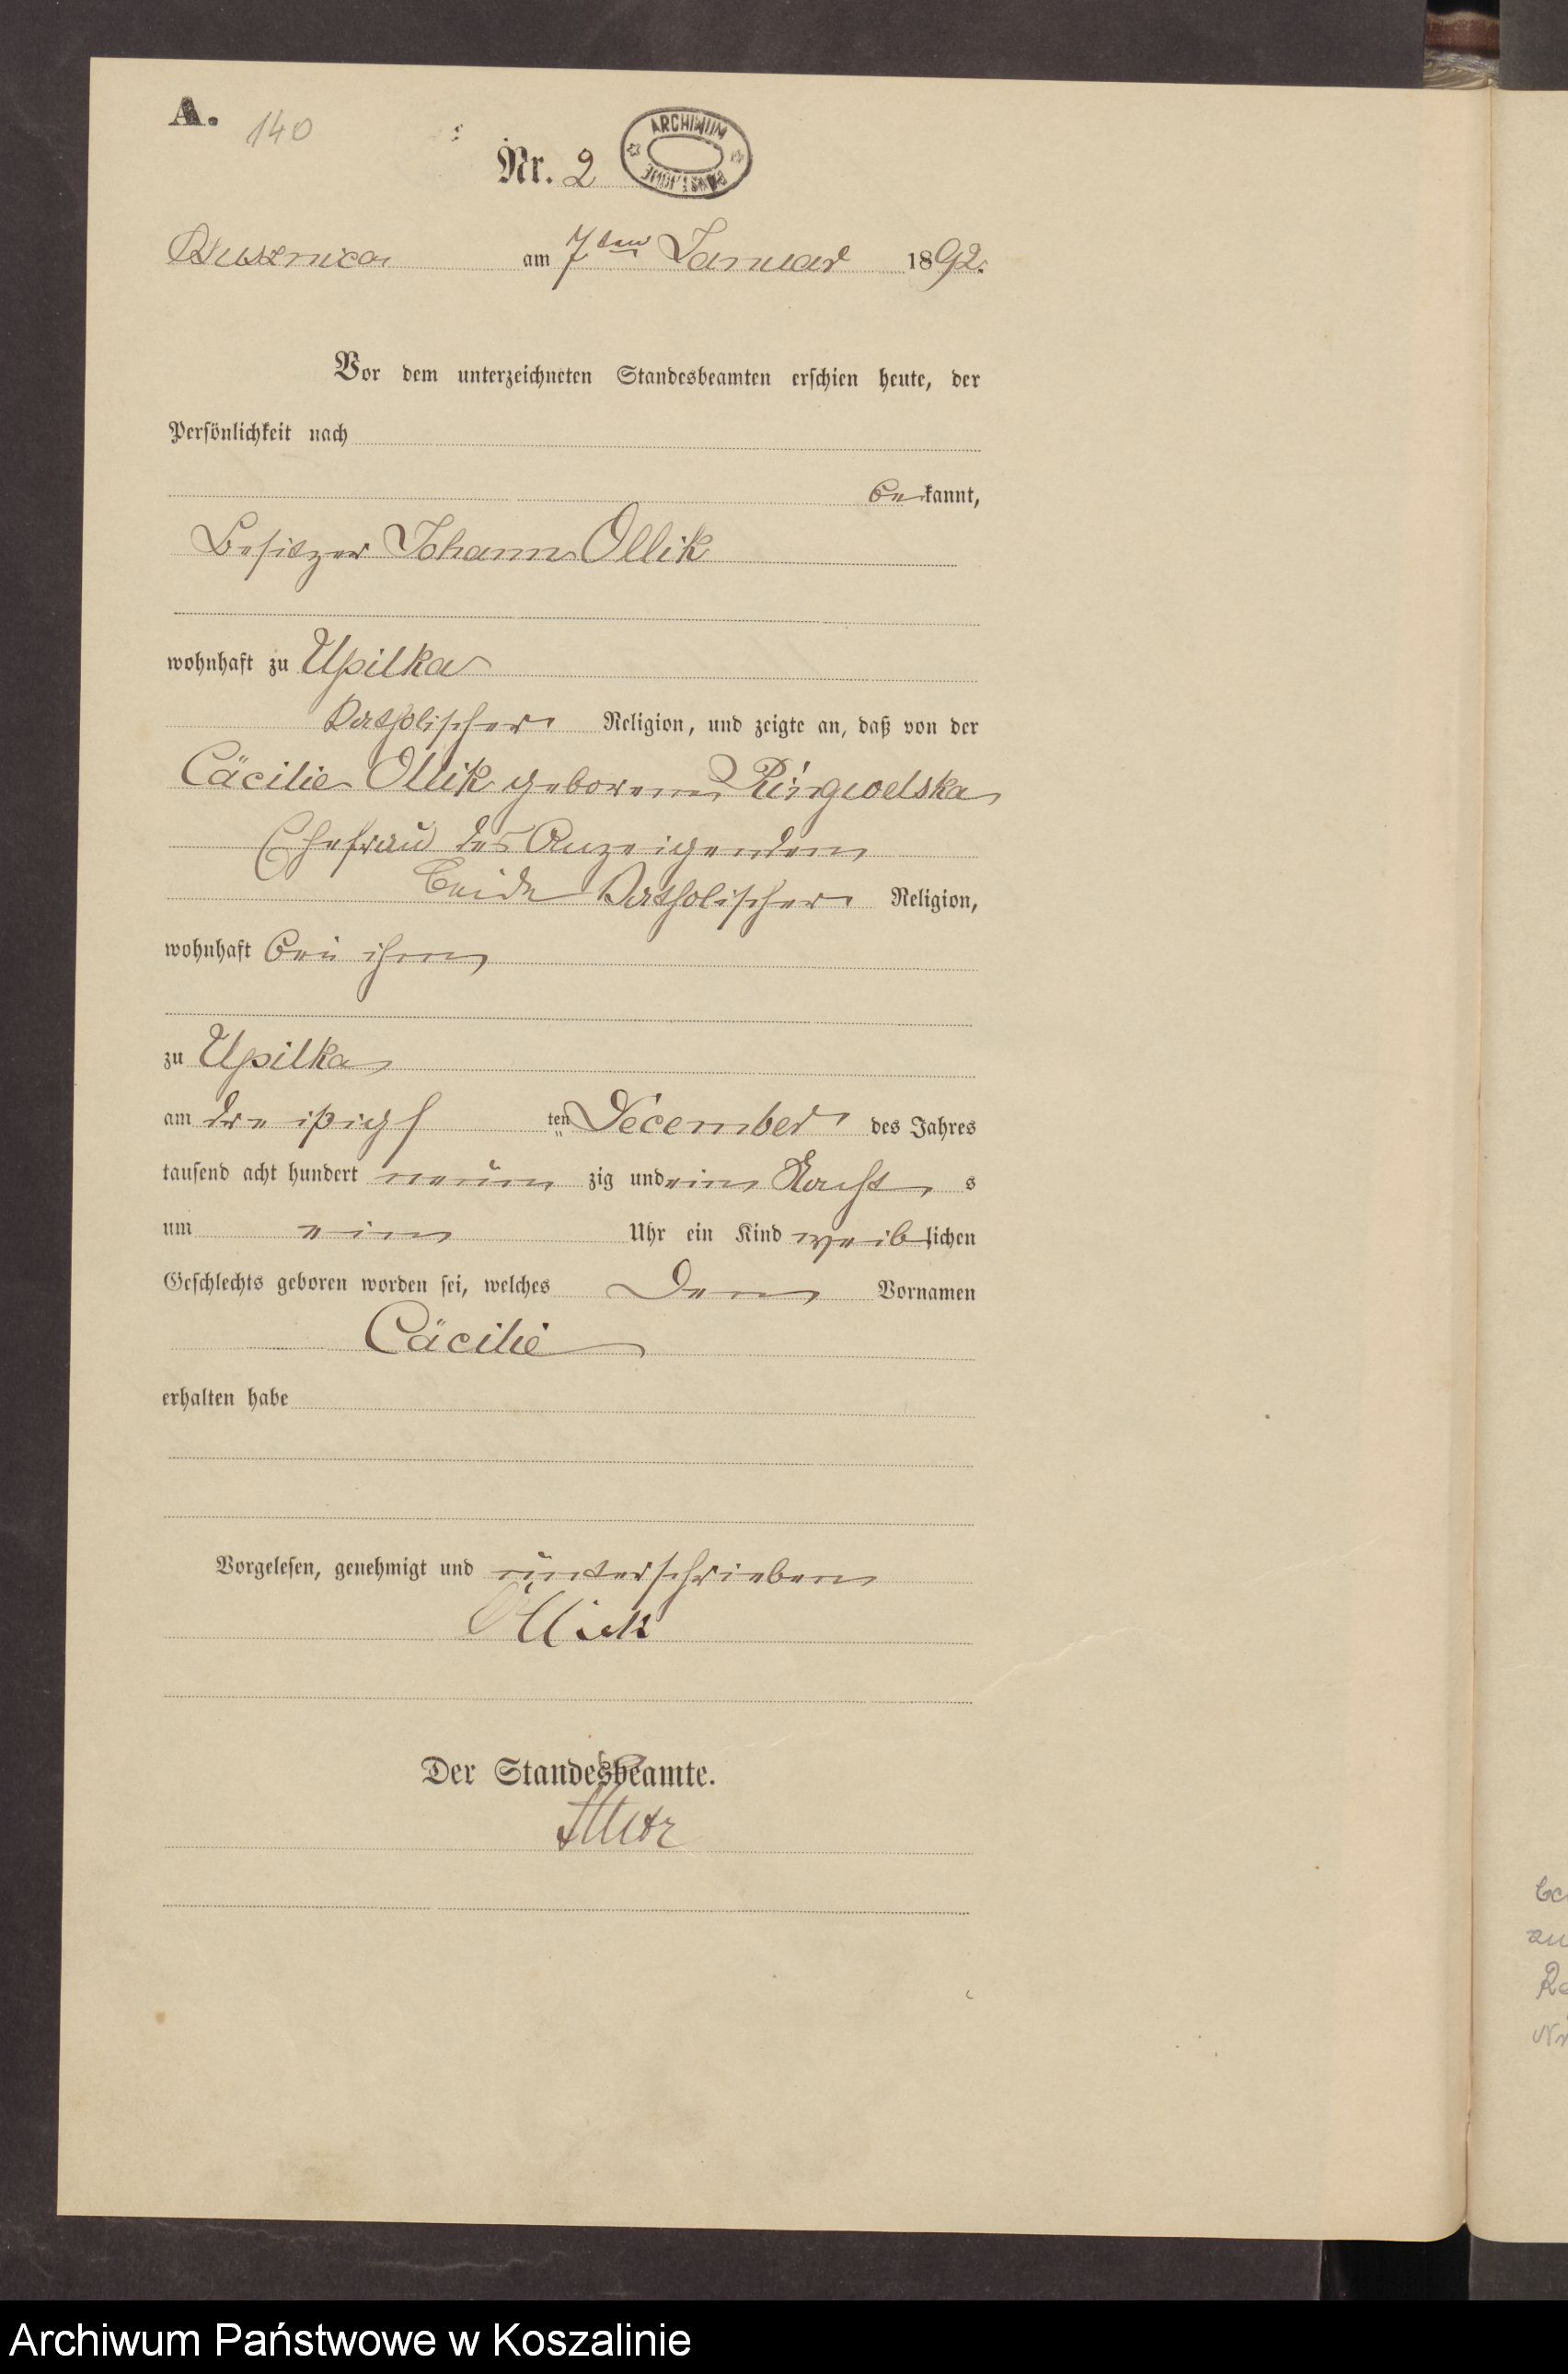 A. 140
Nr. 2
ARCHIWUM PAŃSTWOWE
am 7ten Januar 1892.
Vor dem unterzeichneten Standesbeamten erschien heute, der
Persönlichkeit nach
bekannt,
Besitzer Johann Ollik
wohnhaft zu Upilka
Katholischer Religion, und zeigte an, daß von der
Cäcilie Ollik geborene
Ehefrau des Anzeigenden
beide Katholischer Religion,
wohnhaft bei ihm
zu Upilka
am dreißigs ten December des Jahres
tausend acht hundert neun zig und ein Nacht s
um ein Uhr ein Kind weiblichen
Geschlechts geboren worden sei, welches den Vornamen
Cäcilie
erhalten habe
Vorgelesen, genehmigt und unterschrieben
Ollick
Der Standesbeamte.
Archiwum Państwowe w Koszalinie